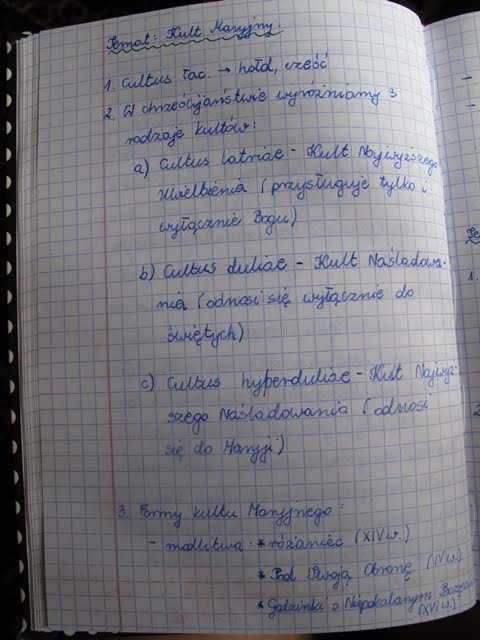 Temat: Kult Maryjny.
1. Cultus łac. → hołd, cześć
2. W chrześcijaństwie wyróżniamy 3
rodzaje kultów:
a) Cultus latriae - Kult Najwyższego
Uwielbienia (przysługuje tylko i
wyłącznie Bogu)
b) Cultus duliae - Kult Naśladowa-
nia (odnosi się wyłącznie do
świętych)
c) Cultus hyperduliae - Kult Najwyż-
szego Naśladowania (odnosi
się do Maryji)
3. Formy kultu Maryjnego:
- modlitwa: * różaniec (XIV w.)
* Pod Twoją Obronę (IV w.)
* Godzinki o Niepokalanym
(XVI w.)
1.
2